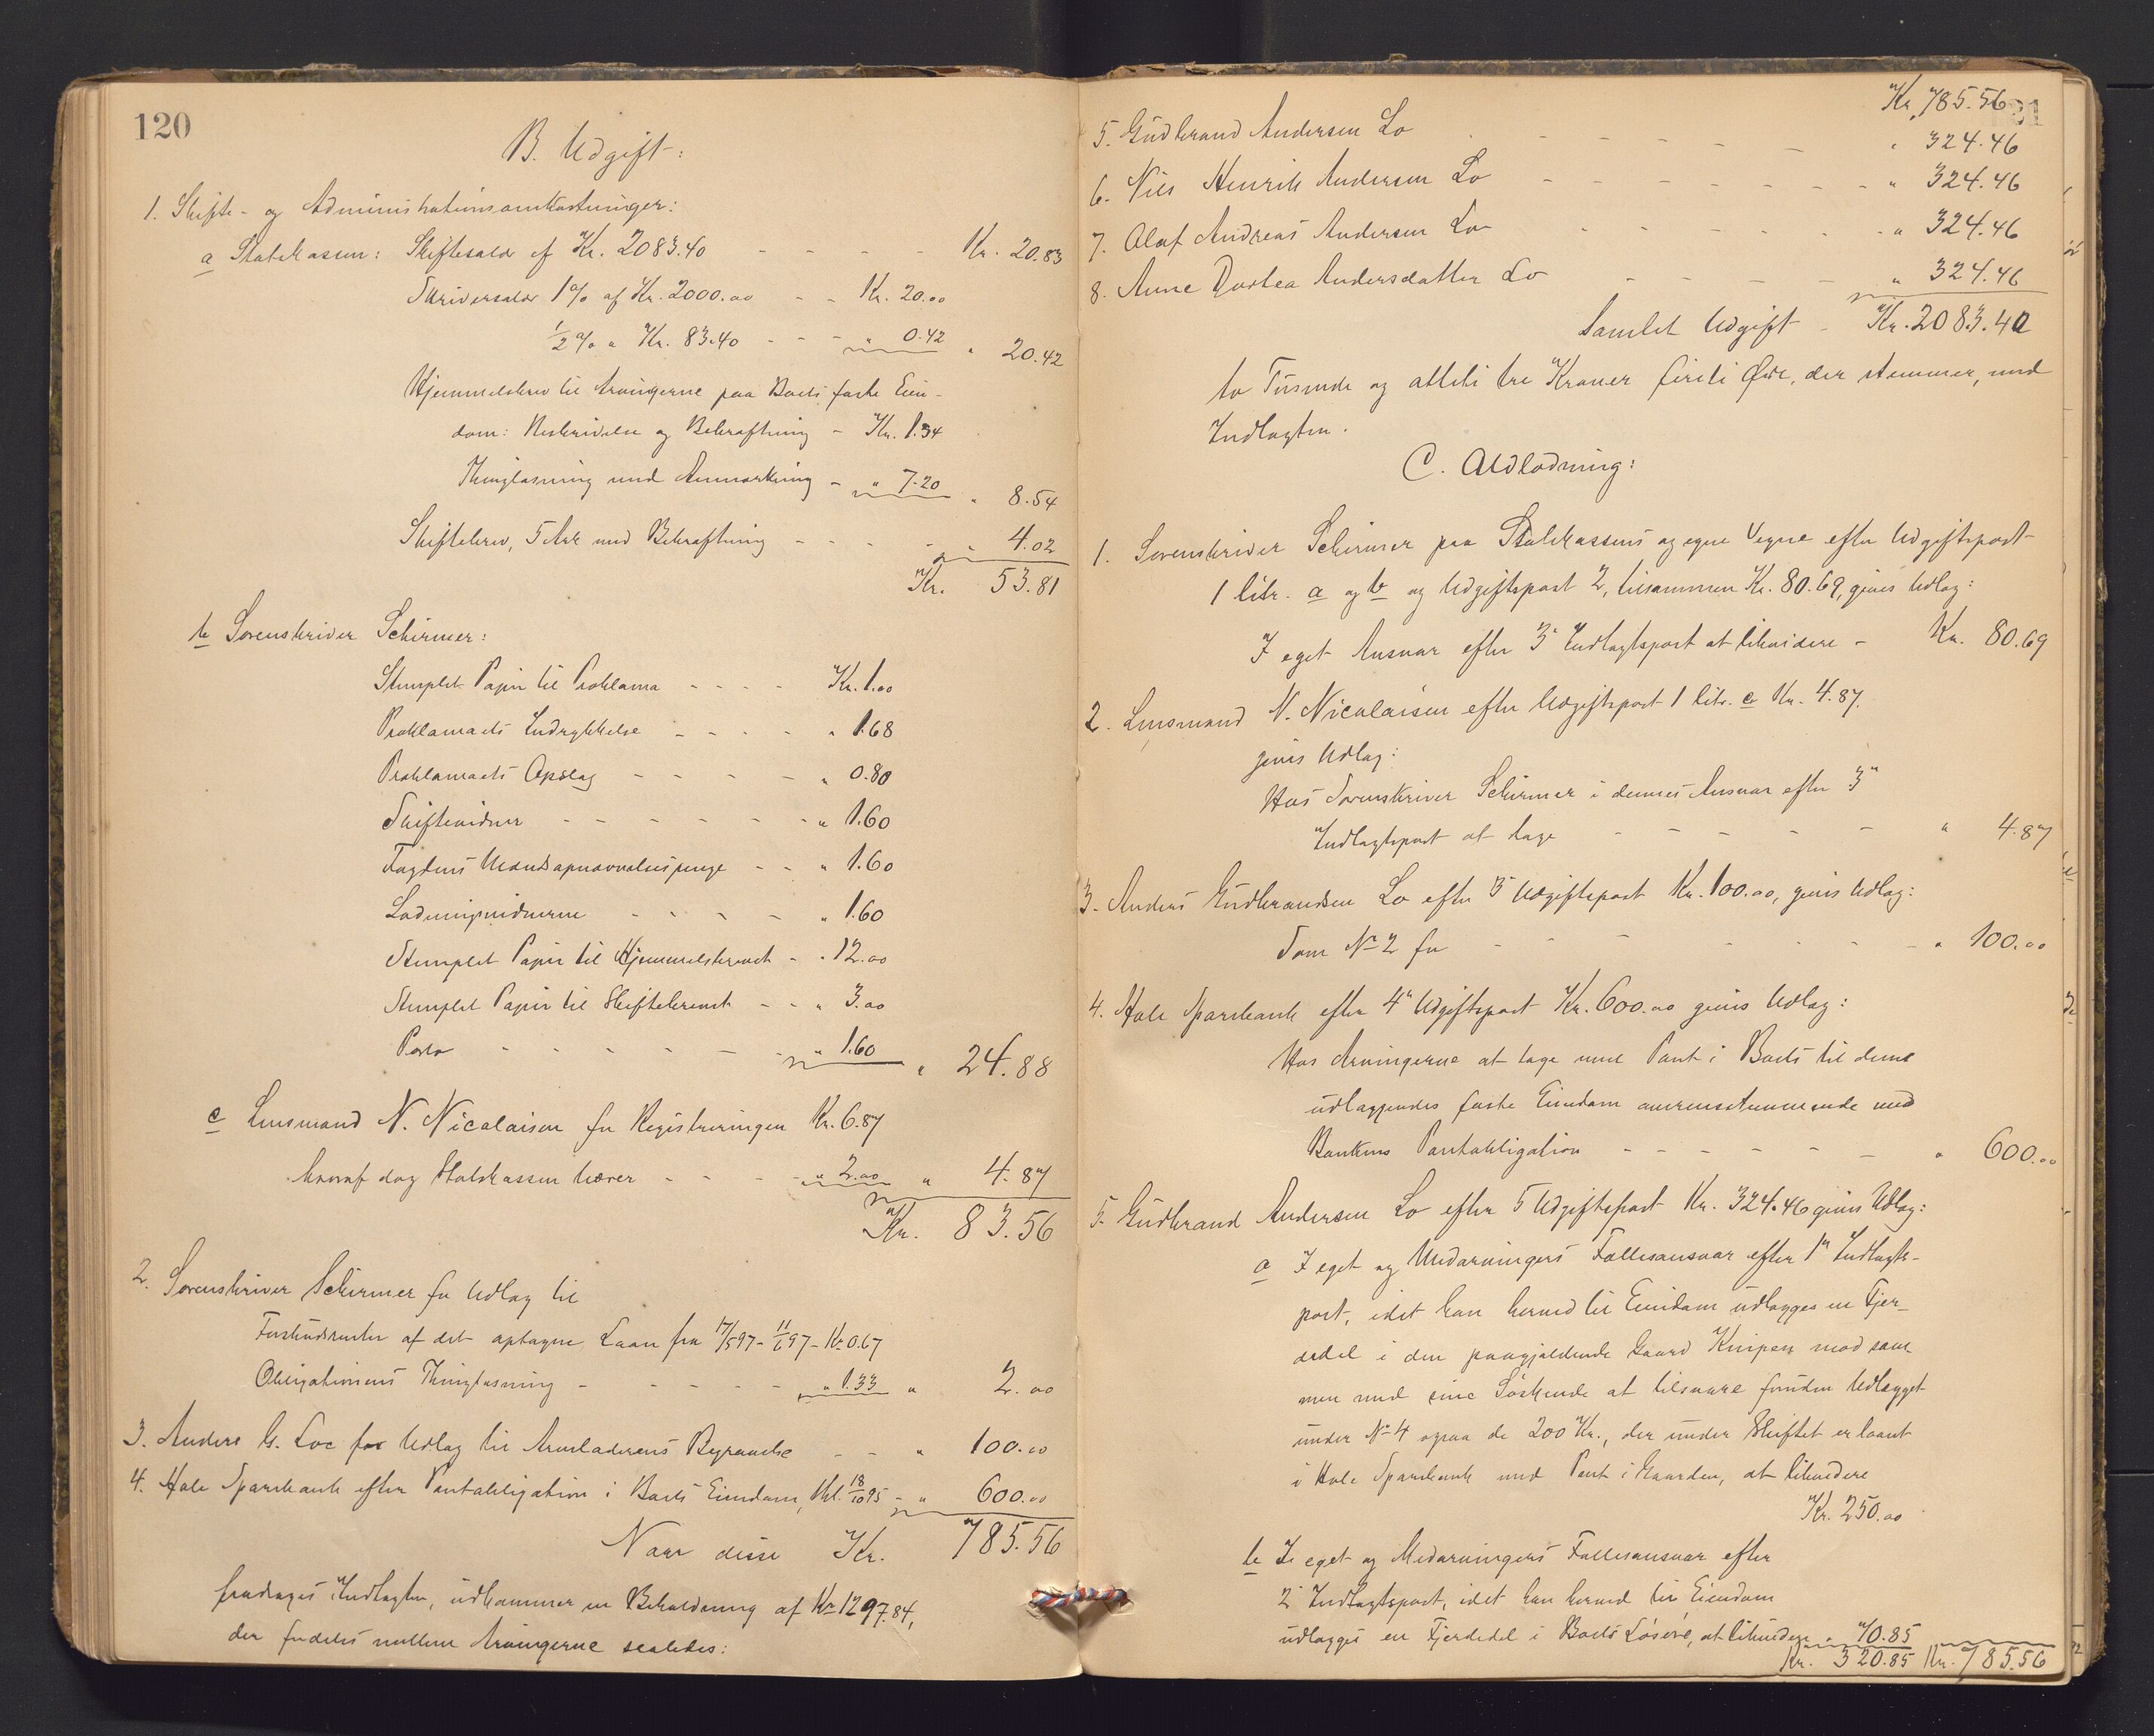 120
B. Udgift:
1. Skifte- og Administrationsomkostninger:
a Statskassen: Skiftesalær af Kr. 2083.40 - - - - Kr. 20.83
Skriversalær 1% af Kr. 2000.00 - - Kr. 20.00
½% " Kr. 83.40 - - - " 0.42 " 20.42
Hjemmelsbrev til Arvingerne paa Boets faste Eien-
dom: Beskrivelse og Bekræftning - Kr. 1.34
Thinglæsning med Anmærkning - " 7.20 " 8.54
Skiftebrev, 5 Ark med Bekræftning - - - - " 4.02
Kr. 53.81
b Sorenskriver Schirmer:
Stemplet Papir til Proklama - - - - Kr. 1.00
Proklamaets Indrykkelse - - - - " 1.68
Proklamaets Opslag - - - - " 0.80
Skiftevidner - - - - - - " 1.60
Fogdens Udeladelsespenge - - " 1.60
Lodningsvidnerne - - - - " 1.60
Stemplet Papir til Hjemmelsbrevet - " 12.00
Stemplet Papir til Skiftebrevet - - " 3.00
Porto - - - - - - " 1.60 " 24.88
c Lensmand N. Nicolaisen for Registreringen Kr. 6.87
hvoraf dog Statskassen bærer - - - " 2.00 " 4.87
Kr. 83.56
2. Sorenskriver Schirmer for Udlag til
Forskudsrenter af det optagne Laan fra 17/5 97 - 11/6 97 - Kr. 0.67
Obligationens Thinglæsning - - - - - " 1.33 " 2.00
3. Anders G. Loe for Udlag til Arveladerens Begravelse - - " 100.00
4. Hole Sparebank efter Pantobligation i Boets Eiendom, thl. 18/10 95 - " 600.00
Naar disse Kr. 785.56
fradrages Indtægten, udkommer en Beholdning af Kr. 1297.84,
der fordeles mellem Arvingerne saaledes:
Kr. 785.56
121
5. Gudbrand Andersen Lo - - - - - - " 324.46
6. Nils Henrik Andersen Lo - - - - - - " 324.46
7. Olaf Andreas Andersen Lo - - - - - - " 324.46
8. Anne Dortea Andersdatter Lo - - - - " 324.46
Samlet Udgift - Kr. 2083.40
to Tusende og otteti tre Kroner firti Øre, der stemmer, med
Indtægten.
C. Udlodning:
1. Sorenskriver Schirmer paa Statskassens og egne Vegne efter Udgiftspost
1 litr. a og b og Udgiftspost 2, tilsammen Kr. 80.69, gives Udlæg:
I eget Ansvar efter 3' Indtægtspost at likvidere - Kr. 80.69
2. Lensmand N. Nicolaisen efter Udgiftspost 1 litr. c Kr. 4.87.
gives Udlæg:
Hos Sorenskriver Schirmer i dennes Ansvar efter 3'
Indtægtspost at tage - - - - - " 4.87
3. Anders Gudbrandsen Lo efter 3' Udgiftspost Kr. 100.00, gives Udlæg:
Som No 2 for - - - - - - - " 100.00
4. Hole Sparebank efter 4' Udgiftspost Kr. 600.00 gives Udlæg:
Hos Arvingerne at tage med Pant i Boets til denne
udlæggendes faste Eiendom overensstemmende med
Bankens Pantobligation - - - - - - " 600.00
5. Gudbrand Andersen Lo efter 5 Udgiftspost Kr. 324.46 gives Udlæg:
a I eget og Medarvingers Fællesansvar efter 1' Indtægts-
post, idet han herved til Eiendom udlægges en Fjer-
dedel i den paagjældende Gaard Knipen mod sam-
men med sine Søskende at tilsvare foruden Udlægget
under No 4 ogsaa de 200 Kr., der under Skiftet er laant
i Hole Sparebank med Pant i Gaarden, at likvidere
Kr. 250.00
b I eget og Medarvingers Fællesansvar efter
2' Indtægtspost, idet han herved til Eiendom
udlægges en Fjerdedel i Boets Løsøre, at likvidere " 70.85
Kr. 320.85 Kr. 785.56